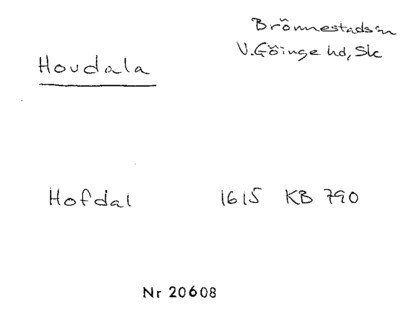 Brönnestadsn
V.Göinge hd, Sk
Hovdala
Hofdal 1615 KB 790
Nr 20608